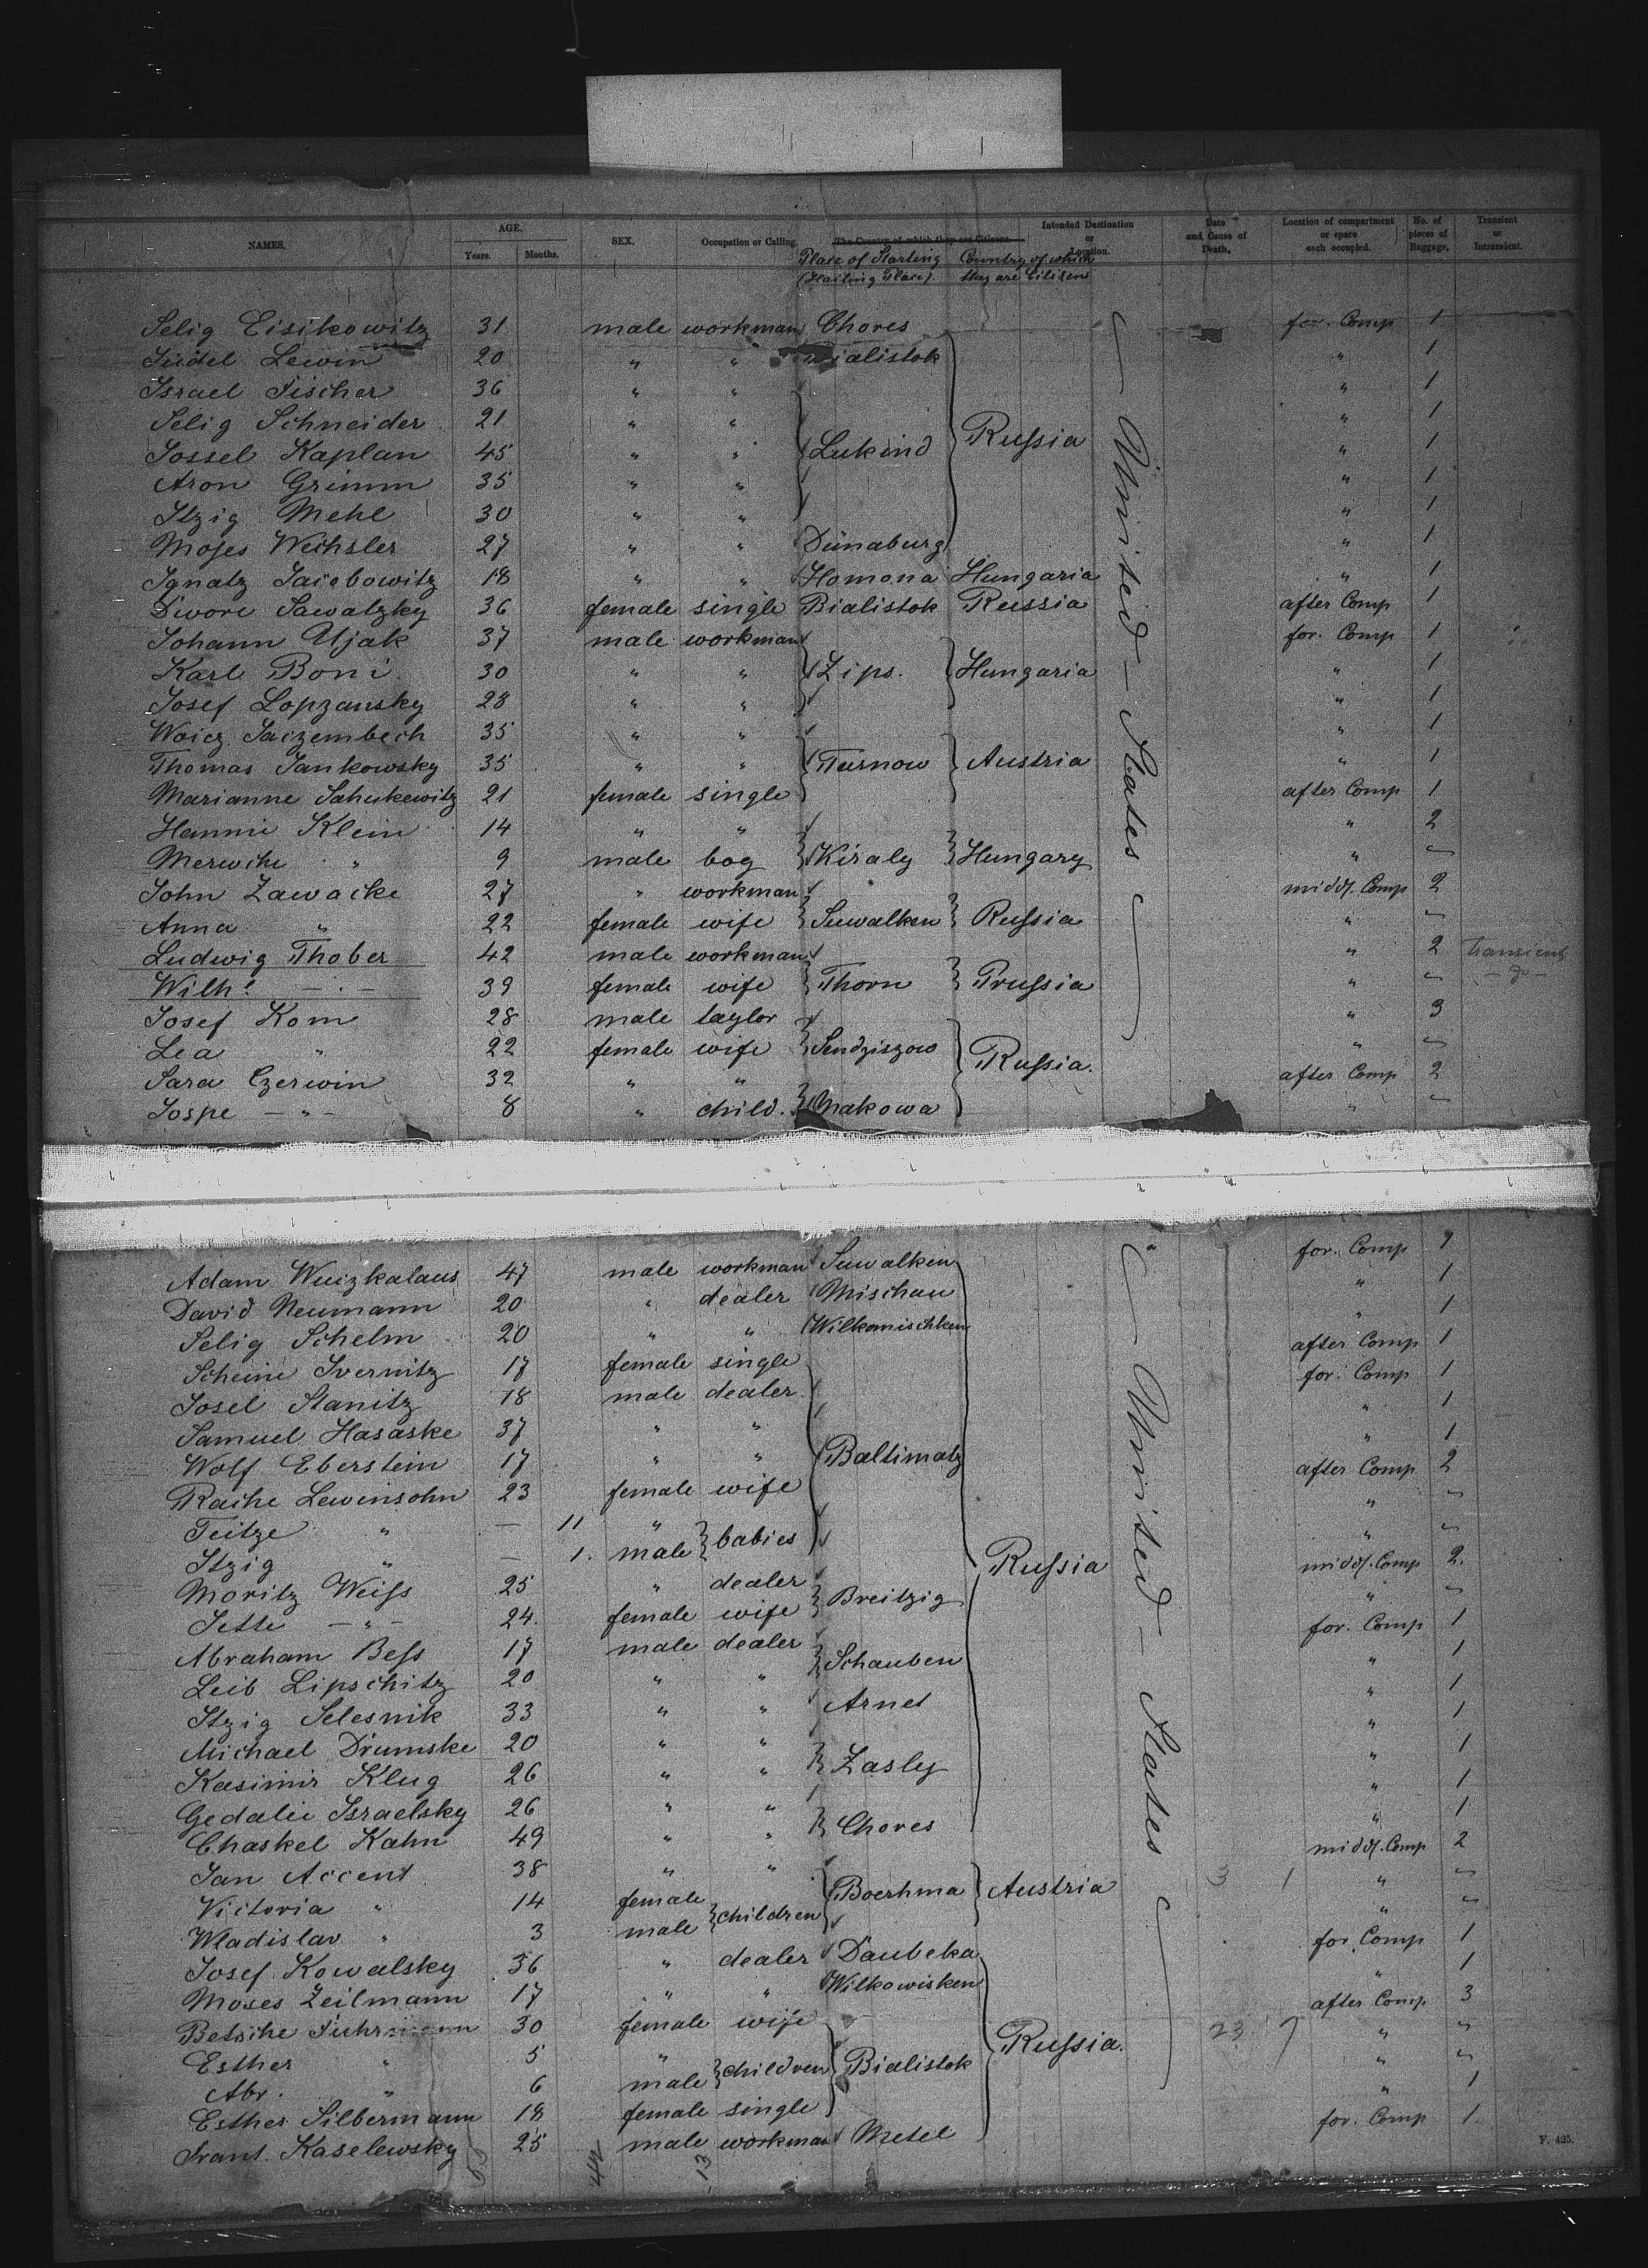 NAMES. AGE. Years. Months. SEX. Occupation or Calling. The Country of which they are Citizens. Intended Destination or Location. Date and Cause of Death. Location of compartment or space each occupied. No. of pieces of Baggage. Transient or Intransient.
Place of Starting (Hailing Place). Country of which they are Citizens
Selig Eisikowitz 31 male workman Chores for. Comp 1
Judel Lewin 20 " " Bialistok " 1
Israel Fischer 36 " " " 1
Selig Schneider 21 " " " 1
Jossel Kaplan 45 " " Lukind Russia " 1
Aron Grimm 35 " " " 1
Itzig Mehl 30 " " " 1
Moses Wechsler 27 " " Dünaburg " 1
Ignatz Jacobowitz 18 " " Homona Hungaria " 1
Dwore Sawatzky 36 female single Bialistok Russia after Comp 1
Johann Ujak 37 male workman for. Comp 1
Karl Boni 30 " " Zips. Hungaria " 1
Josef Lopzansky 28 " " " 1
Woicz. Jaczembech 35 " " " 1
Thomas Jankowsky 35 " " Turnow Austria " 1
Marianne Sahukewitz 21 female single after Comp 1
Hannie Klein 14 " " " 2
Merwche " 9 male boy Kiraly Hungary " "
John Zawacke 27 " workman midd. Comp 2
Anna " 22 female wife Suwalken Russia " "
Ludwig Thober 42 male workman " 2 transient
Wilhe. " 39 female wife Thorn Prussia " " do
Josef Kom 28 male taylor " 3
Lea " 22 female wife Sendziszow Russia. " "
Sara Czerwin 32 " " after Comp 2
Jospe " 8 " child. Makowa " "
United States
Adam Wuizkalaus 47 male workman Suwalken for. Comp 1
David Neumann 20 " dealer Mischau " 1
Selig Schelm 20 " " Wilkomischken " 1
Scheine Ivernitz 17 female single after Comp 1
Josel Stanitz 18 male dealer for. Comp 1
Samuel Hasaske 37 " " " 1
Wolf Eberstein 17 " " Baltimatz " 1
Rache Lewinsohn 23 female wife after Comp 2
Teitze " — 11 " babies " "
Itzig " — 1. male " "
Moritz Weiss 25 " dealer Russia midd. Comp 2.
Jette " 24. female wife Breitzig " "
Abraham Bess 17 male dealer for. Comp 1
Leib Lipschitz 20 " " Schauben " 1
Itzig Selesnik 33 " " Arnet " 1
Michael Drumske 20 " " " 1
Kasimir Klug 26 " " Zasly " 1
Gedalie Israelsky 26 " " " 1
Chaskel Kahn 49 " " Chores " 1
Jan Accent 38 " " midd. Comp 2
Victoria " 14 female children Boerhma Austria 3 1 " "
Wladislav " 3 male " "
Josef Kowalsky 36 " dealer Daubeka for. Comp 1
Moses Zeilmann 17 " " Wilkowisken " 1
Betsche Fuhrmann 30 female wife after Comp 3
Esther " 5 " children Bialistok Russia. 23 7 " "
Abr. " 6 male " "
Esther Silbermann 18 female single " 1
Frant. Kaselewsky 25 male workman Metel for. Comp 1.
United States
F. 425.